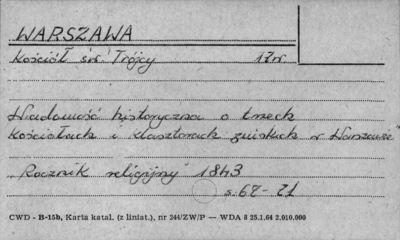 WARSZAWA
Kościół św. Trójcy 17 w.
Wiadomość historyczna o trzech
kościołach i klasztorach żeńskich w Warszawie"
"Rocznik religijny" 1843
s. 67 - 71
CWD - B-15b, Karta katal. (z liniat.), nr 244/ZW/P — WDA 8 25.1.64 2.010.000